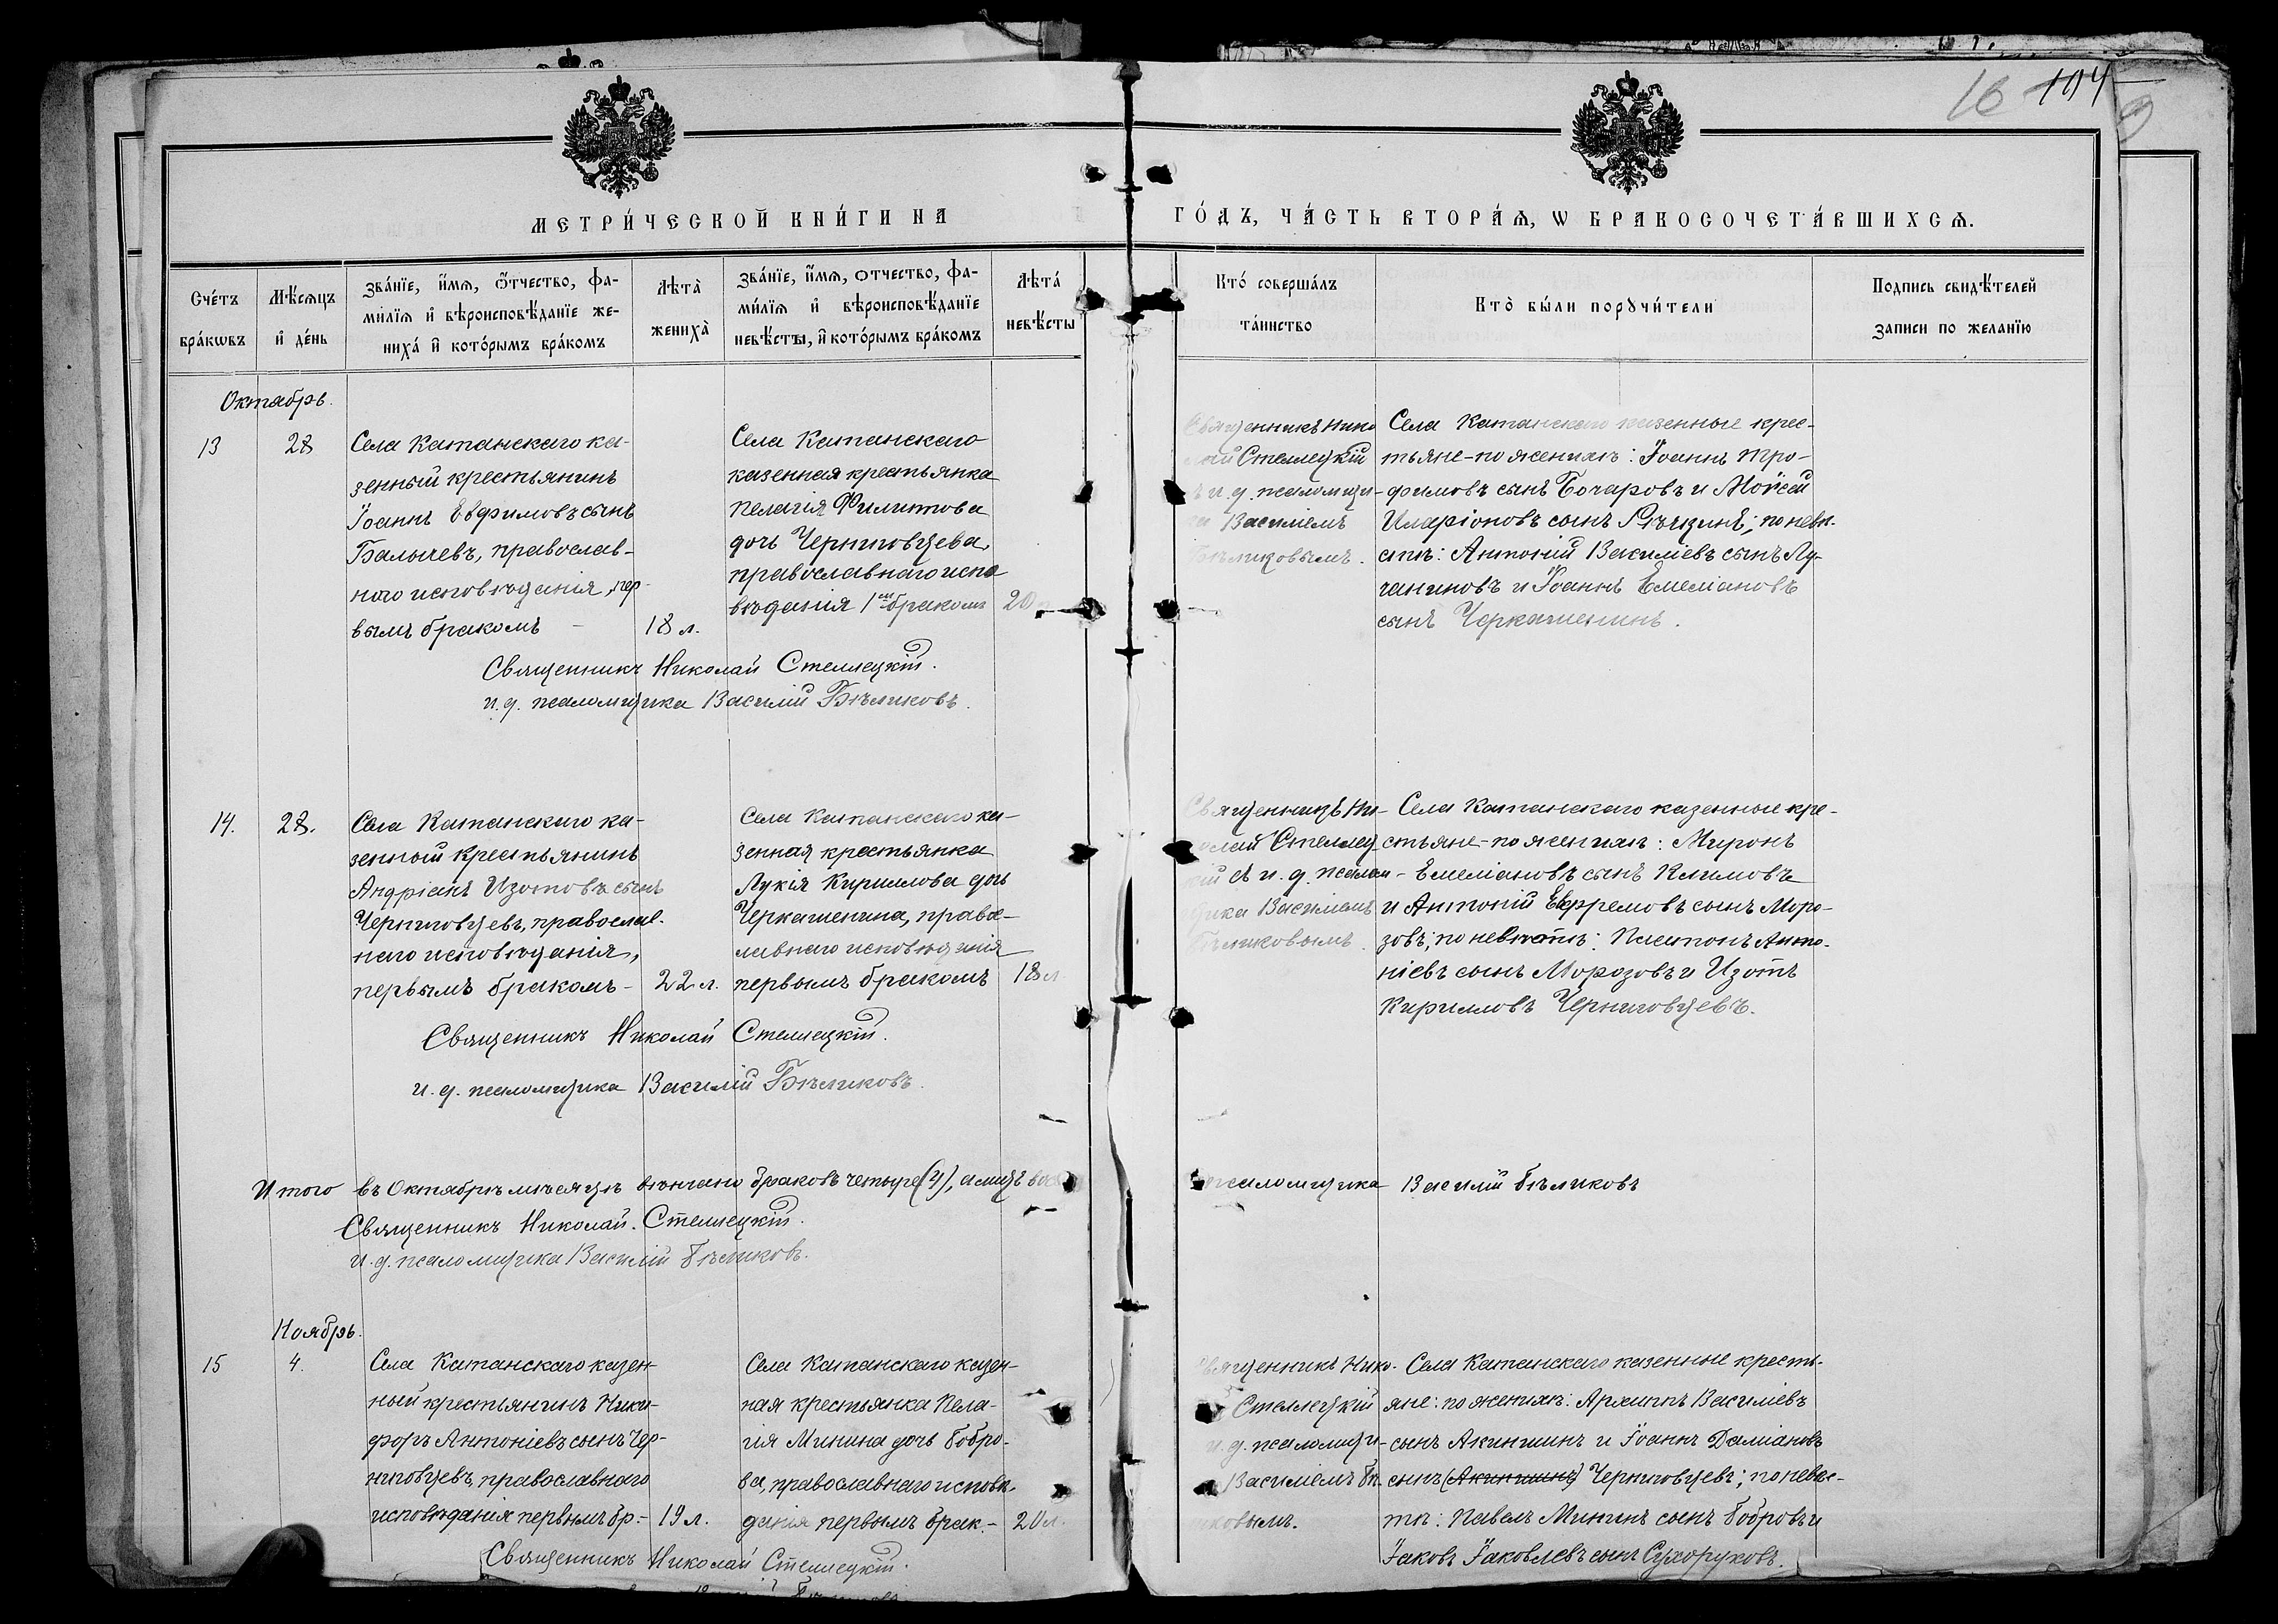 16 104
МЕТРИ́ЧЕСКОЙ КНИ́ГИ НА
ГО́ДЪ, ЧА́СТЬ ВТОРА́Ѧ, Ѡ БРАКОСОЧЕТА́ВШИХСѦ.
Сче́тъ бра́кѡвъ
Мѣ́сѧцъ и҆ де́нь
Зва́нїе, и҆́мѧ, ѻ҆́тчество, фа-
ми́лїѧ и҆ вѣроисповѣ́данїе же-
ниха́ и҆ кото́рымъ бра́комъ
Лѣта̀ жениха̀
Зва́нїе, и҆́мѧ, ѻтчество, фа-
ми́лїѧ и҆ вѣроисповѣ́данїе
невѣ́сты, и҆ кото́рымъ бра́комъ
Лѣта́ невѣ́сты
Кто́ соверша́лъ та́инство
Кто̀ бы́ли порꙋчи́тели
Подпись свидѣ́телей
записи по желанїю
Октябрь.
13
28
Села Катанскаго ка-
зенный крестьянинъ
Іоаннъ Евфимовъ сынъ
Балычевъ, православ-
наго исповѣданія, пер-
вымъ бракомъ
18 л.
Села Катанскаго
казенная крестьянка
Пелагія Филиппова
дочь Черниговцева,
православнаго испо
вѣданія 1ым бракомъ
20
Священникъ Нико
лай Стеллецкій
съ и. д. псаломщи-
ка Василіемъ
Бѣликовымъ.
Села Катанскаго казенные крес-
тьяне - по женихѣ: Іоаннъ Тро-
фимовъ сынъ Бочаровъ и Мойсей
Иларіоновъ сынъ Рѣчкинъ; по невѣ-
стѣ: Антоній Василіевъ сынъ Лу-
чаниновъ и Іоаннъ Емеліановъ
сынъ Черкашенинъ.
Священникъ Николай Стеллецкій.
и. д. псаломщика Василій Бѣликовъ.
14.
28.
Села Катанскаго ка-
зенный крестьянинъ
Андріанъ Изотовъ сынъ
Черниговцевъ, православ-
наго исповѣданія,
первымъ бракомъ -
22 л.
Села Катанскаго ка-
зенная крестьянка
Лукія Кириллова дочь
Черкашенина, право-
славнаго исповѣданія
первымъ бракомъ
18 л
Священникъ Ни-
колай Стеллец-
кій съ и. д. псалом-
щика Василіемъ
Бѣликовымъ.
Села Катанскаго казенные кре-
стьяне - по женихѣ: Миронъ
Емеліановъ сынъ Климовъ
и Антоній Ефремовъ сынъ Моро-
зовъ; по невѣстѣ: Платонъ Анто-
ніевъ сынъ Морозовъ и Изотъ
Кирилловъ Черниговцевъ.
Священникъ Николай Стеллецкій.
и. д. псаломщика Василій Бѣликовъ.
Итого въ Октябрѣ мѣсяцѣ вѣнчано браковъ четыре (4), а лицъ
псаломщика Василій Бѣликовъ
Священникъ Николай Стеллецкій.
и. д. псаломщика Василій Бѣликовъ.
Ноябрь.
15
4.
Села Катанскаго казен
ный крестьянинъ Ники-
форъ Антоніевъ сынъ Чер-
ниговцевъ, православнаго
исповѣданія первымъ бр. -
19 л.
Села Катанскаго казен-
ная крестьянка Пела-
гія Минина дочь Бобро-
ва, православнаго исповѣ-
данія первымъ брак. -
20 л.
Священникъ Нико-
Стеллецкій
и. д. псаломщи-
Василіемъ Бѣ-
ликовымъ.
Села Катанскаго казенные кресть-
яне: по женихѣ: Архиппъ Василіевъ
сынъ Акиншинъ и Іоаннъ Даміановъ
сынъ (Акиншинъ) Черниговцевъ; по невѣс-
тѣ: Павелъ Мининъ сынъ Бобровъ и
Іаковъ Іаковлевъ сынъ Сухоруковъ.
Священникъ Николай Стеллецкій.